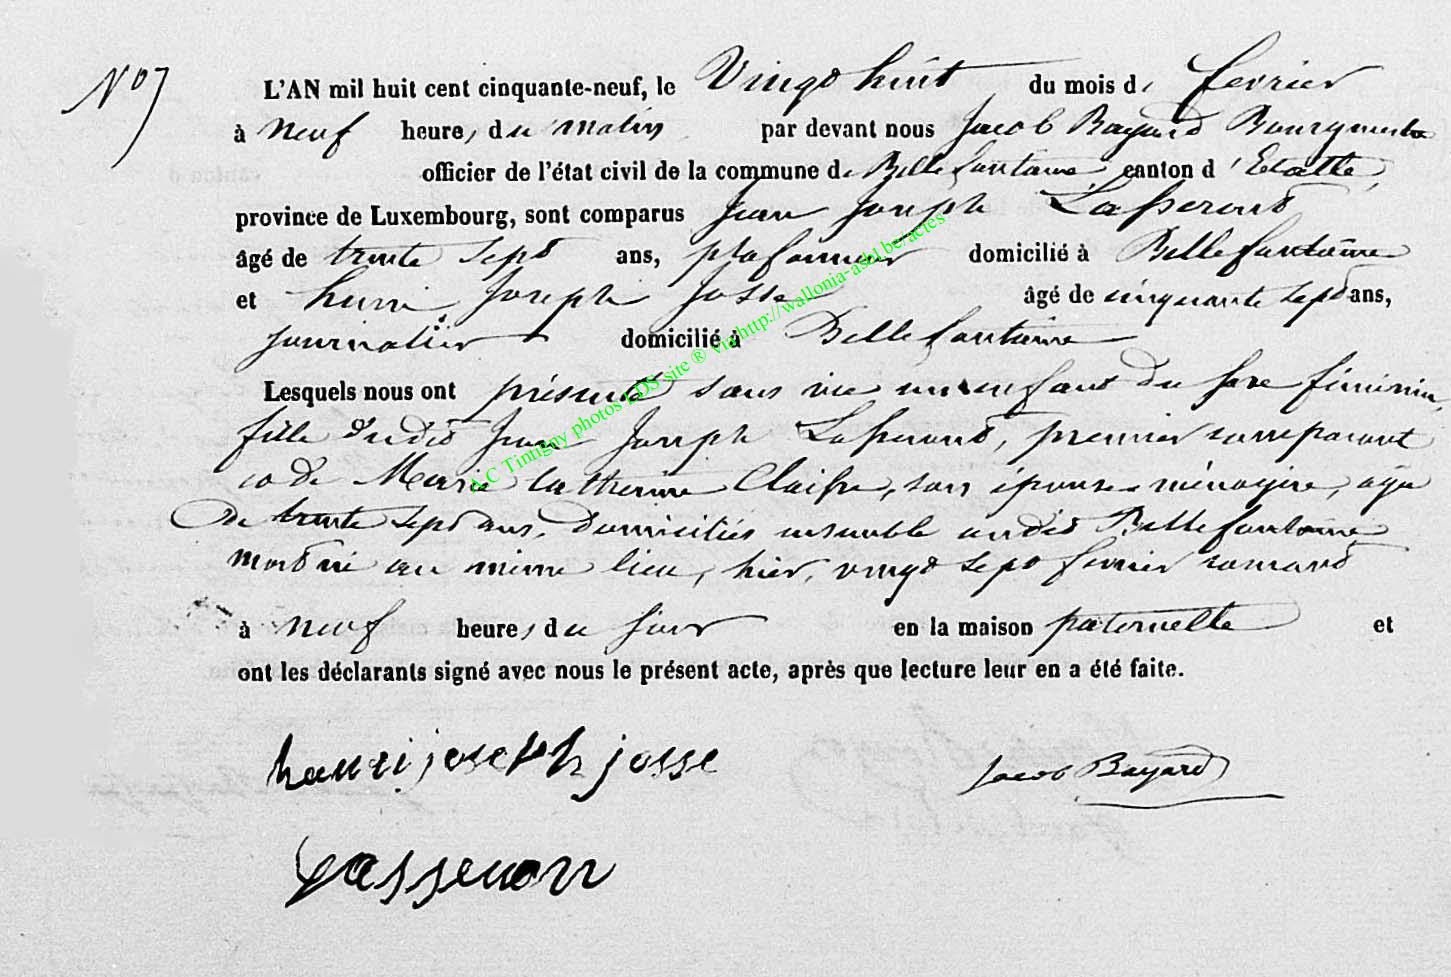 N° 7
L'AN mil huit cent cinquante-neuf, le Vingt huit du mois de fevrier
à neuf heures du matin par devant nous Jacob Bayard Bourgmestre
officier de l'état civil de la commune de Bellefontaine, canton d'Etalle,
province de Luxembourg, sont comparus Jean Joseph
âgé de trente sept ans, plafonneur domicilié à Bellefontaine
et henri Joseph Josse âgé de cinquante sept ans,
journalier domicilié à Bellefontaine
Lesquels nous ont présenté sans vie un enfant du sexe féminin,
fille dudit Jean Joseph premier comparant
et de Marie Catherine son épouse ménagère, agée
de trente sept ans, domiciliés ensemble audit Bellefontaine
mort né au même lieu, hier, vingt sept fevrier courant
à neuf heures du jour en la maison paternelle et
ont les déclarants signé avec nous le présent acte, après que lecture leur en a été faite.
henri joseph josse Jacob Bayard
AC Tintigny photos EDS site ® via http://wallonia-asbl.be/actes